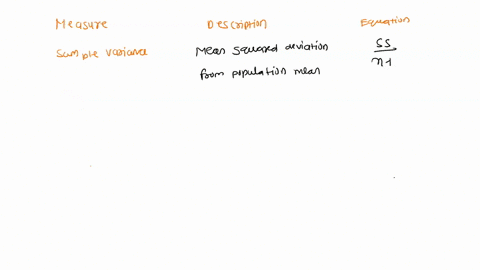 Measure Description Equation
Sample variance Mean squared deviation SS
from population mean n-1